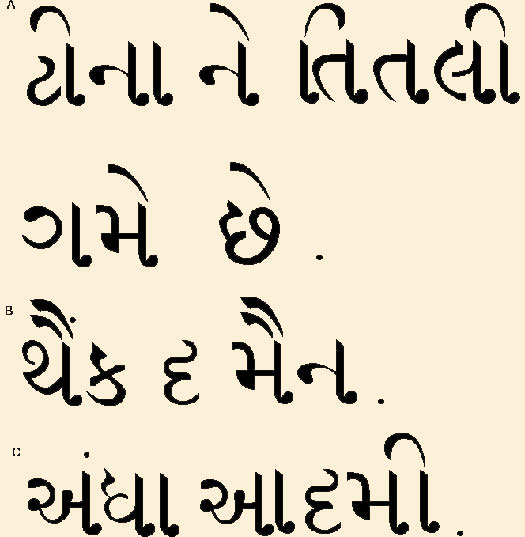 A
ટીના ને તિતલી
ગમે છે .
B
થૈંક દ મૈન .
C
અંધા આદમી .